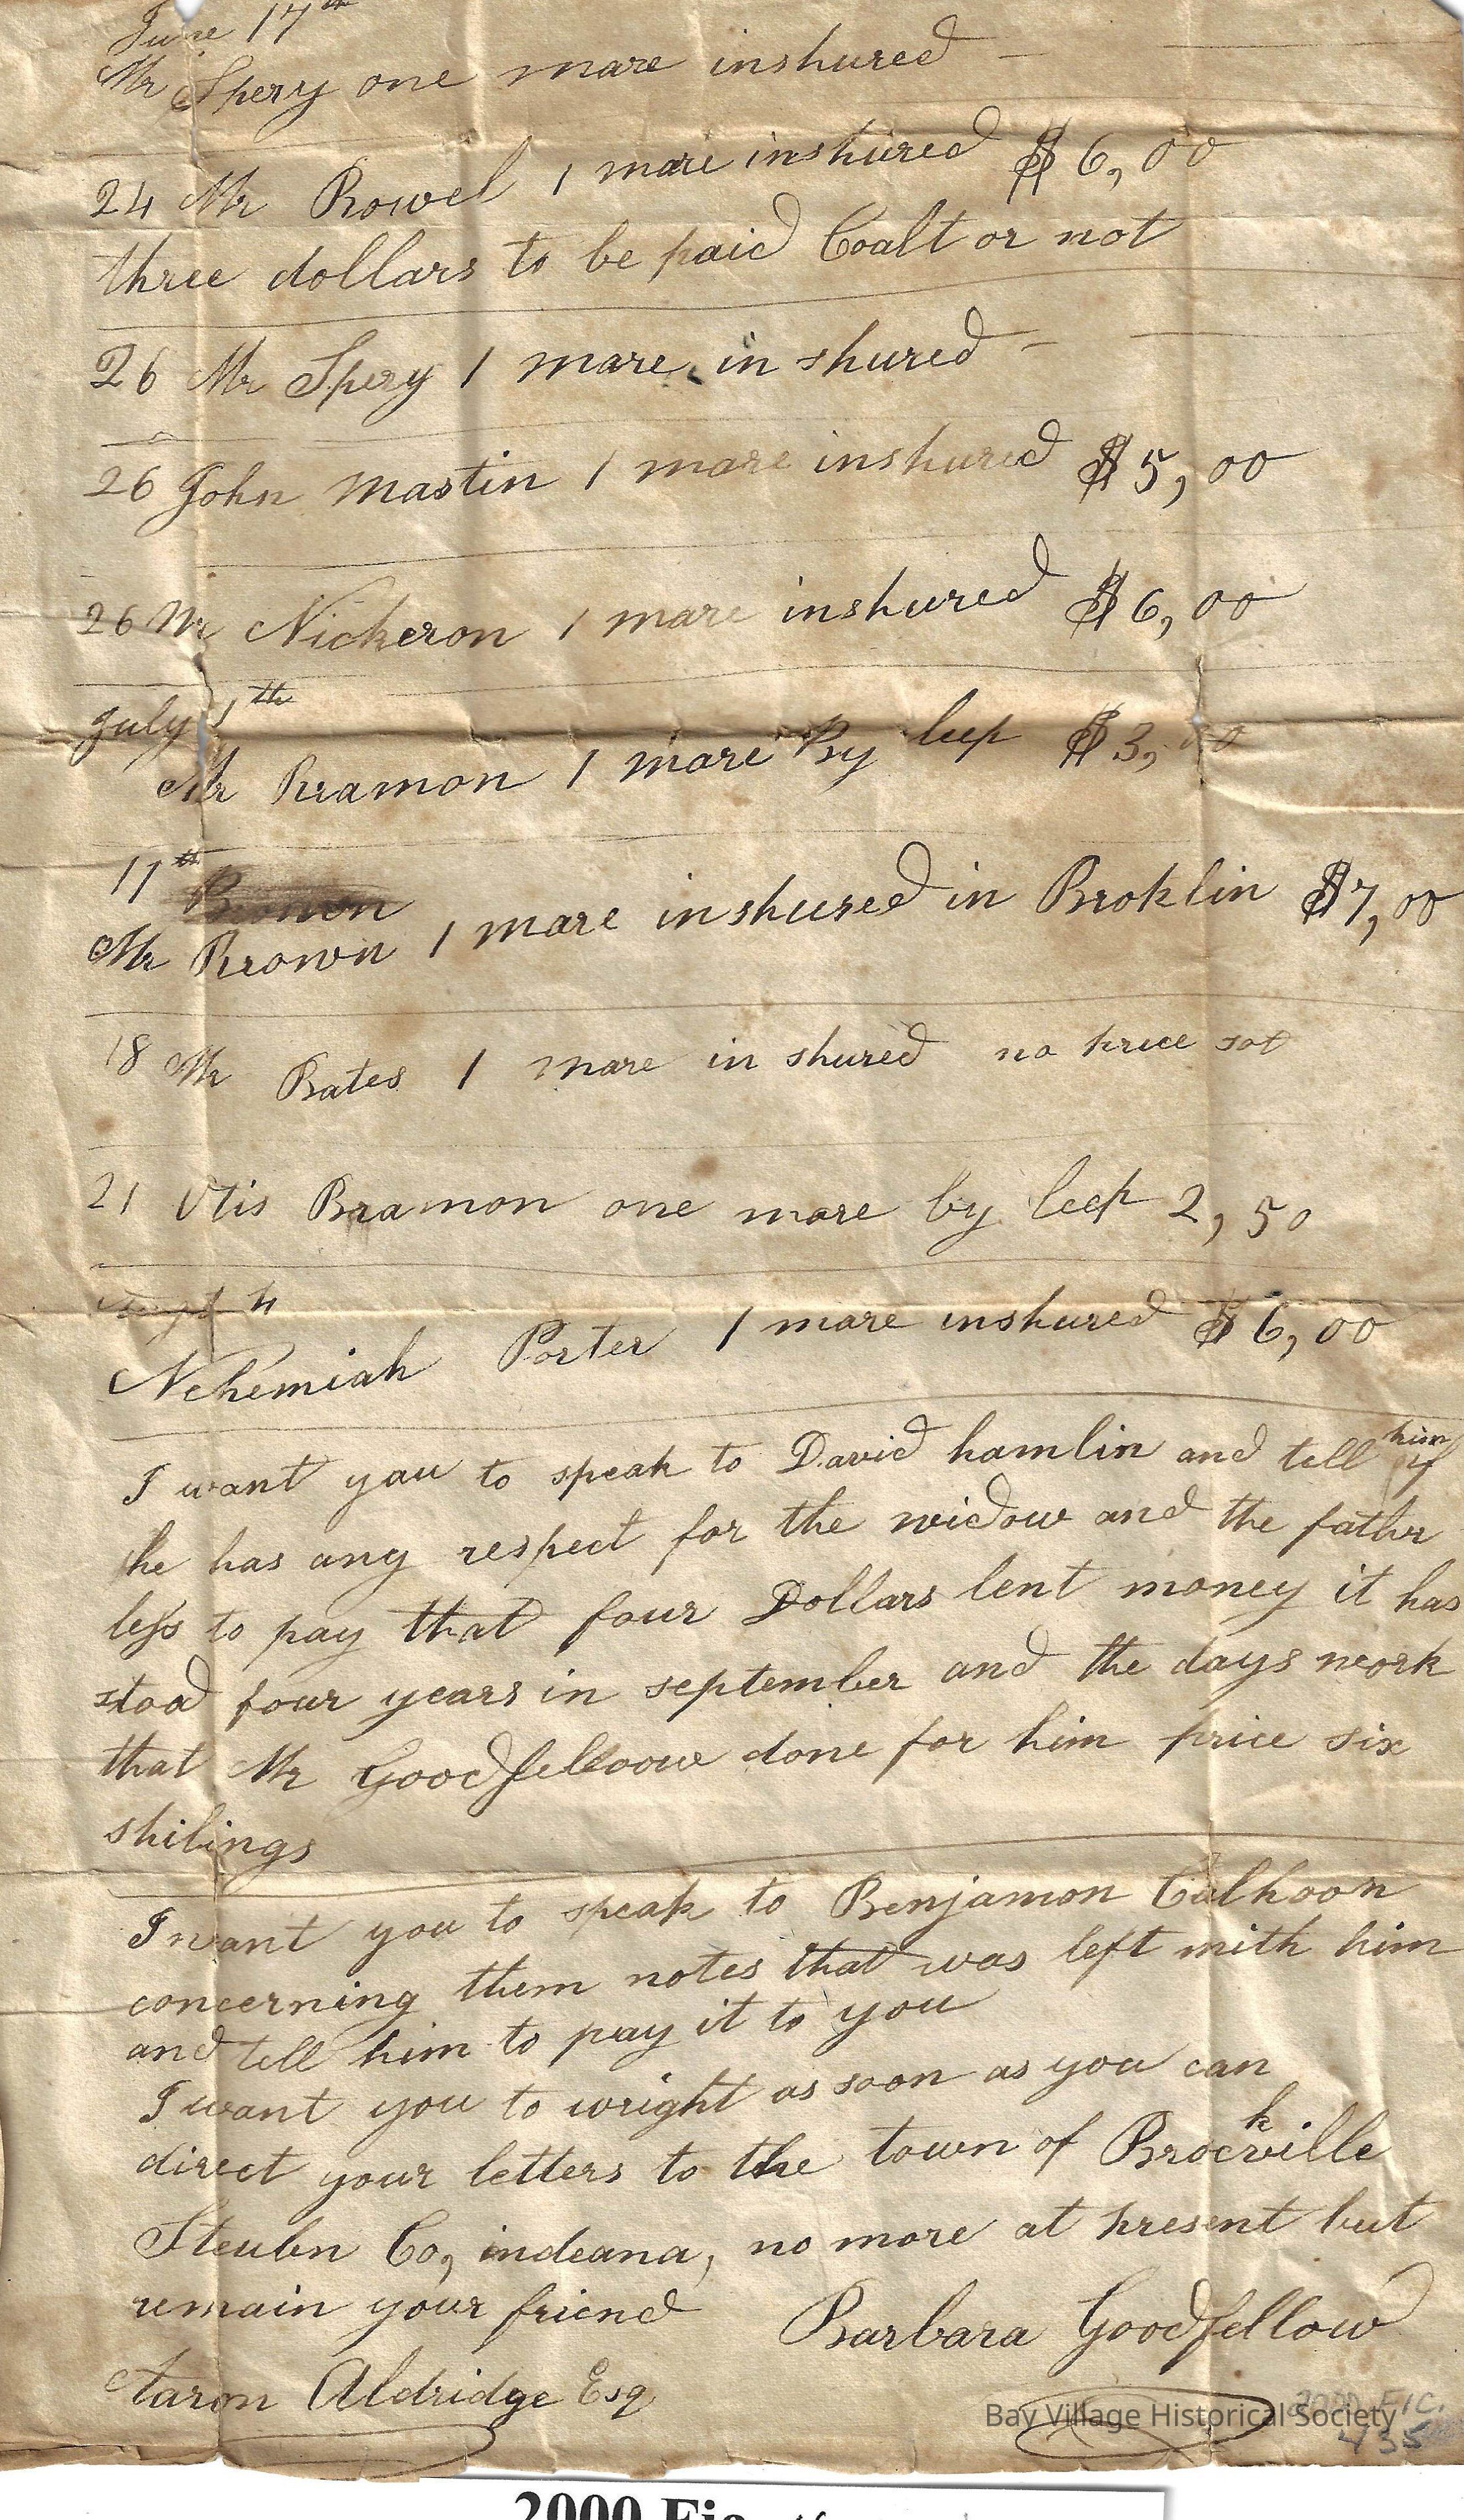 June 17th
Mr Spery one mare inshured
24 Mr Rowel 1 mare inshured $6,00
three dollars to be paid Coalt or not
26 Mr Spery 1 mare in shured
26 John Mastin 1 mare inshured $5,00
26 Mr Nickeron 1 mare inshured $6,00
July 1th
Mr Bramon 1 mare By leep $3,00
11th
Mr Brown 1 mare inshured in Broklin $7,00
18 Mr Bates 1 mare in shured no price sot
21 Otis Bramon one mare by leep 2,50
4
Nehemiah Porter 1 mare inshured $6,00
I want you to speak to David hamlin and tell him if
he has any respect for the widow and the father
less to pay that four Dollars lent money it has
stod four years in september and the days work
that Mr Goodfelloow done for him price six
shilings
I want you to speak to Benjamon Calhoon
concerning them notes that was left with him
and tell him to pay it to you
I want you to wright as soon as you can
direct your letters to the town of Brockville
Steubn Co, indeana, no more at present but
remain your friend Barbara Goodfellow
Aaron Aldridge Esq
Bay Village Historical Society
2000 FIC.
435
2000 Fic